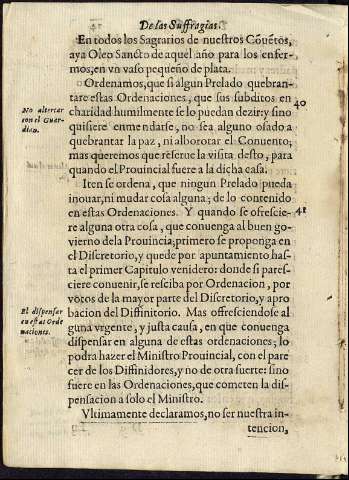 De las Suffragias.
En todos los Sagrarios de nuestros Cōvētos,
aya Oleo Sancto de aquel año para los enfer-
mos; en vn vaso pequeño de plata.
Ordenamos, que si algun Prelado quebran-
tare estas Ordenaciones, que sus subditos en
40
No altercar
con el Guar-
dian.
charidad humilmente se lo puedan dezir: y sino
quisiere enmendarse, no sea alguno osado a
quebrantar la paz, ni alborotar el Conuento;
mas queremos que reserue la visita desto, para
quando el Prouincial fuere a la dicha casa.
Iten se ordena, que ningun Prelado pueda
inouar, ni mudar cosa alguna; de lo contenido
en estas Ordenaciones. Y quando se ofrescie-
41
re alguna otra cosa, que conuenga al buen go-
vierno dela Prouincia; primero se proponga en
el Discretorio, y quede por apuntamiento has-
ta el primer Capitulo venidero: donde si pares-
ciere conuenir, se resciba por Ordenacion, por
votos de la mayor parte del Discretorio, y apro
El dispensar
en estas Orde
naciones.
bacion del Diffinitorio. Mas offresciendose al
guna vrgente, y justa causa, en que conuenga
dispensar en alguna de estas ordenaciones; lo
podra hazer el Ministro Prouincial, con el pare
cer de los Diffinidores, y no de otra suerte: sino
fuere en las Ordenaciones, que cometen la dis-
pensacion a solo el Ministro.
Vltimamente declaramos, no ser nuestra in-
tencion,